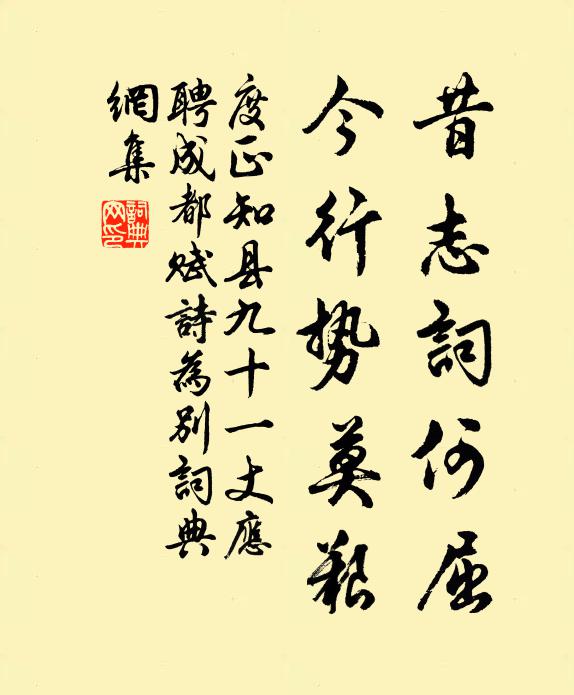 昔志詞何屈
今行勢莫艱
度正知县九十一丈應
聘成都賦詩為別詞典
網集
詞典
网印